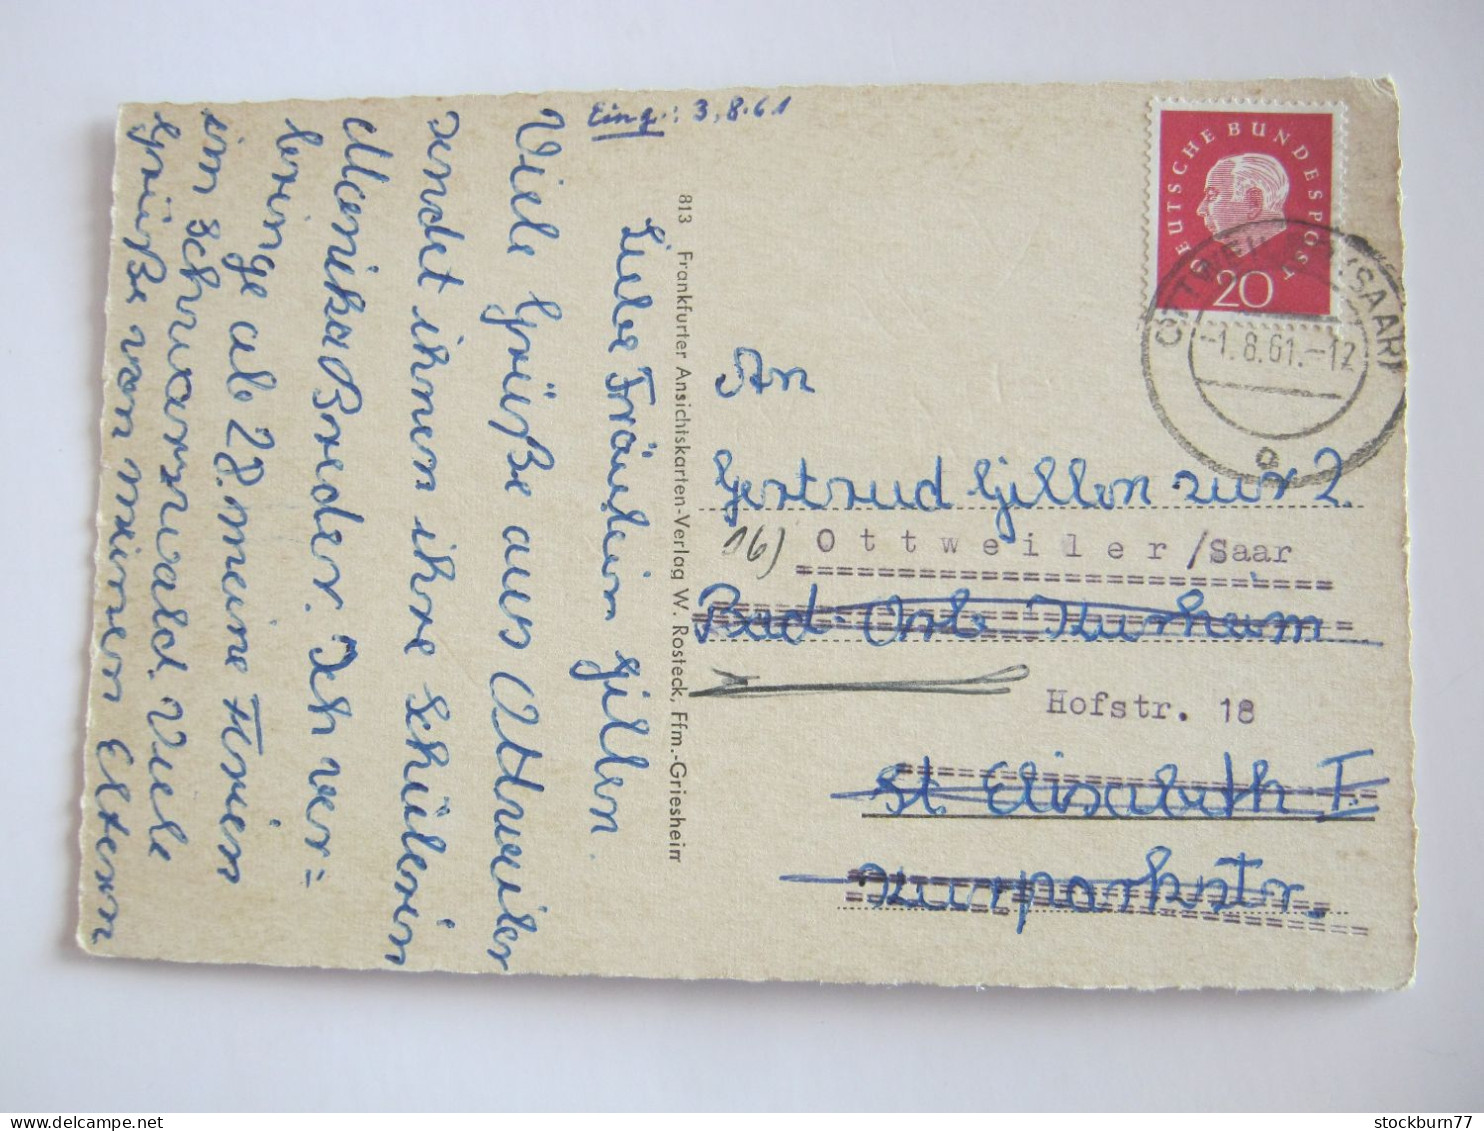 Eing.: 3.8.61
Liebe Fräulein Gillen
Viele Grüße aus Ottweiler
sendet ihnen ihre Schülerin
Monika Breder. Ich ver=
bringe ab 28. meine Ferien
im Schwarzwald. Viele
Grüße von meinen Eltern
813 Frankfurter Ansichtskarten-Verlag W. Rosteck, Ffm.-Griesheim
DEUTSCHE BUNDESPOST
20
OTTWEILER (SAAR)
-1.8.61.-12
a
An
Gertrud Gillen zur Z.
16) Ottweiler/Saar
Bad-Orb Kurheim
Hofstr. 18
St. Elisabeth I.
Kurparkstr.
stockburn77